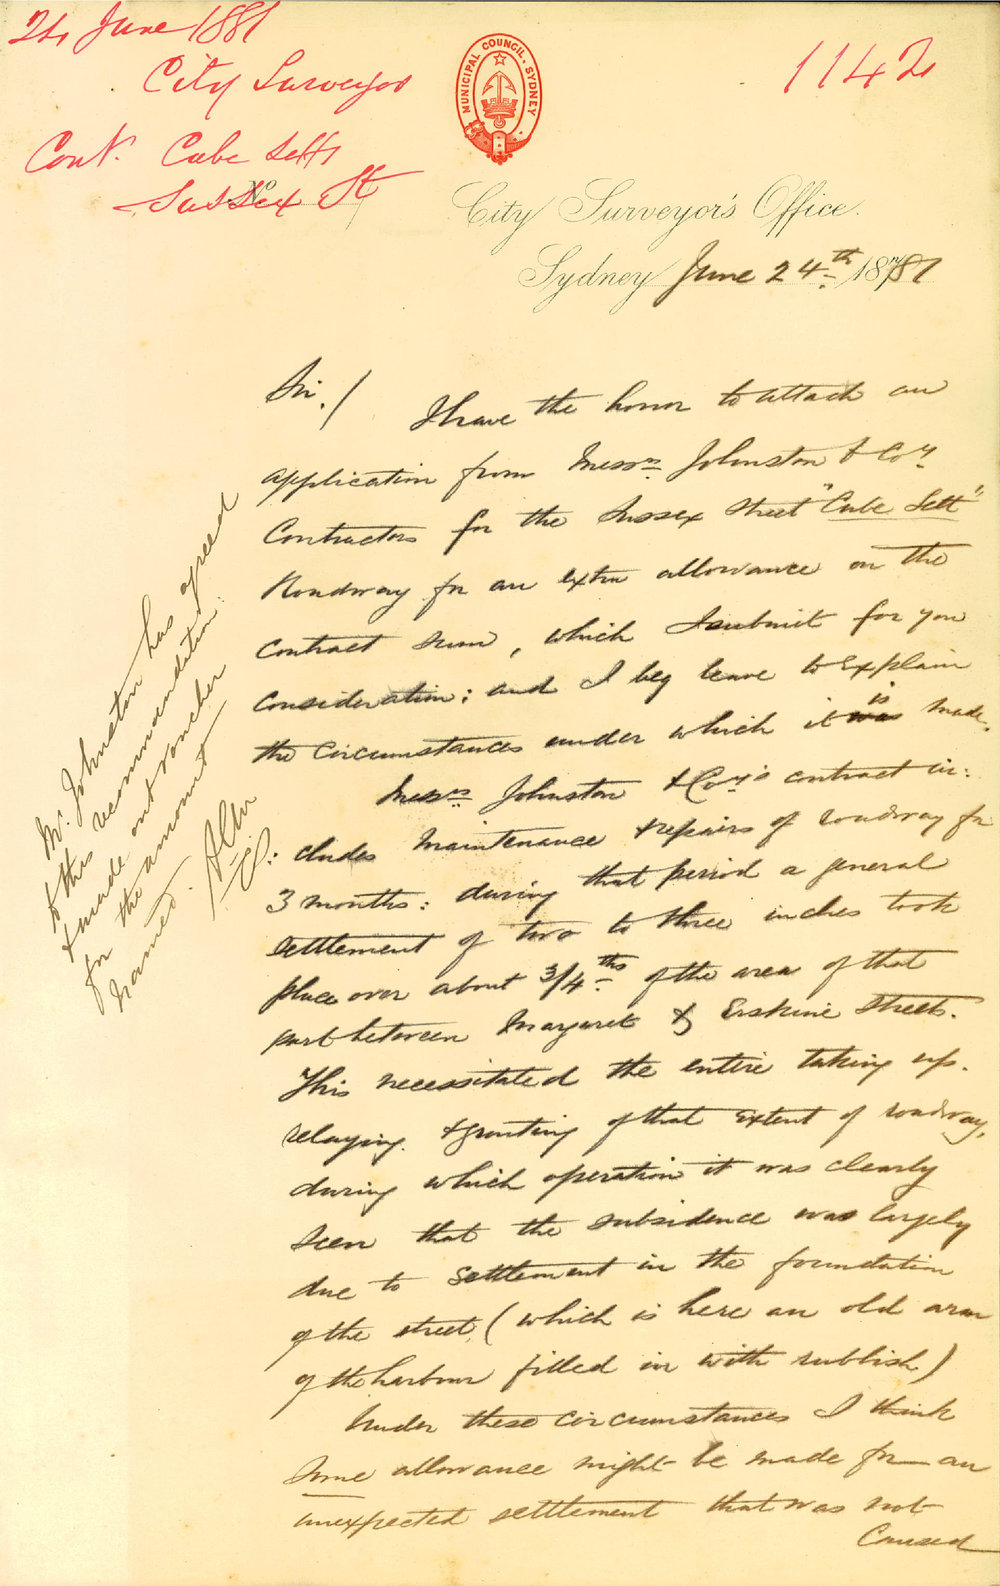 24 June 1881
City Surveyor
Cont. Cube Setts
Sussex St
MUNICIPAL COUNCIL. SYDNEY
1142
City Surveyor's Office.
Sydney June 24th 1881
Sir./ I have the honor to attach an
application from Messrs Johnston & Coy
Contractors for the Sussex Street "Cube Sett"
Roadway for an extra allowance on the
contract sum, which I submit for you
consideration: and I beg leave to explain
the circumstances under which it is made.
Messrs Johnston & Coy's contract in:
:cludes maintenance & repairs of roadway for
3 months: during that period a general
settlement of two to three inches took
place over about 3/4ths of the area of that
part between Margaret & Erskine Streets.
This necessitated the entire taking up.
relaying. & grouting of that extent of roadway,
during which operation it was clearly
seen that the subsidence was largely
due to settlement in the foundation
of the street, (which is here an old arm
of the harbour filled in with rubbish)
Under these circumstances I think
some allowance might be made for an
unexpected settlement that was not
Caused
Mr. Johnston has agreed
to this recommendation.
& made out voucher
for the amount
named.